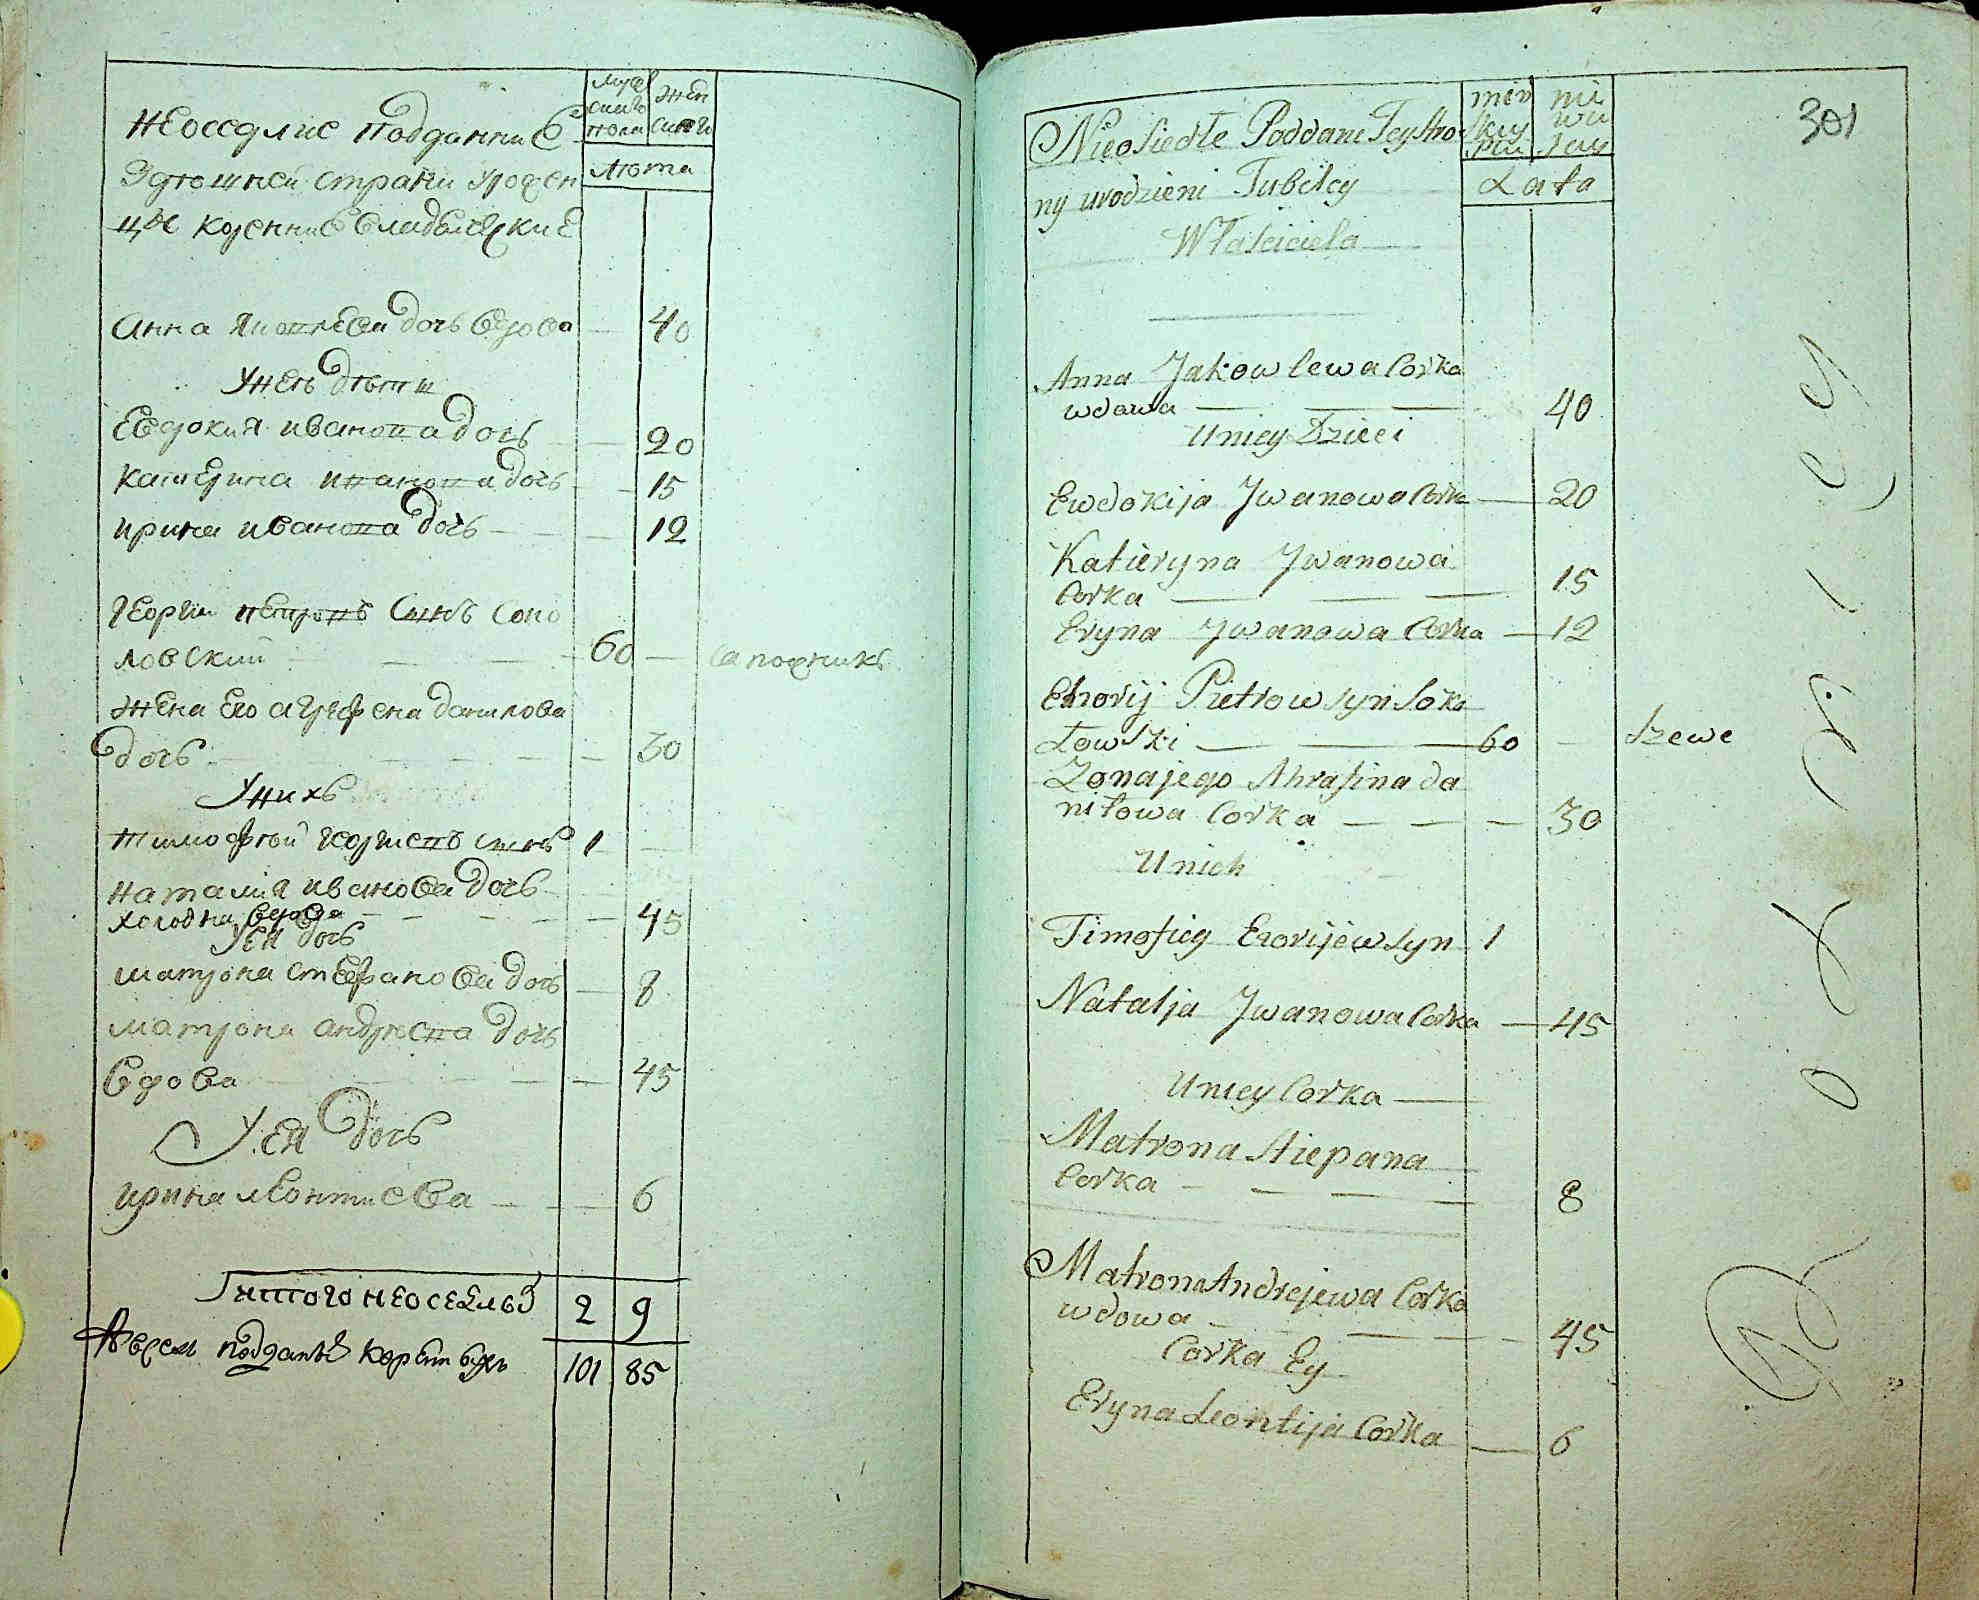 неоседлие подданние
здешней страни уроджен
це коренние владелческие
мужеска пола
женска
Люта
Анна Яковлева дочь вдова — 40
у ней дѣти
Евдокия иванова дочь — 20
катерина иванова дочь — 15
ирина иванова дочь — 12
георги петровъ синъ соко
ловский — 60 — сапожникъ
жена его агрефена данилова
дочь — 30
у нихъ
тимофѣй георгиевъ синъ 1
наталия иванова дочь
вдова — 45
у ея дочь
матрона стефанова дочь — 8
матрона андреева дочь
вдова — 45
У ея дочь
ирина леонтиева — 6
итого неоселыхъ 2 9
А всехъ подданыхъ 101 85
301
Nieosiedłe Poddane Teystro-
ny urodzieni Tubilcy
Właściciela
Lata
Anna Jakowlewa Corka
wdowa — 40
Uniey Dzieci
Ewdokija Jwanowa Corka — 20
Katieryna Jwanowa
Corka — 15
Eryna Jwanowa Corka — 12
Ehorij Pietrow syn Soko
łowski — 60 — szewc
Zona jego Ahrafina da
niłowa Corka — 30
Unich
Timofiey Ehorijew syn 1
Natalja Jwanowa Corka — 45
Uniey Corka
Matrona Stiepana
Corka — 8
Matrona Andrejewa Corka
wdowa — 45
Corka Ey
Eryna Leontija Corka — 6